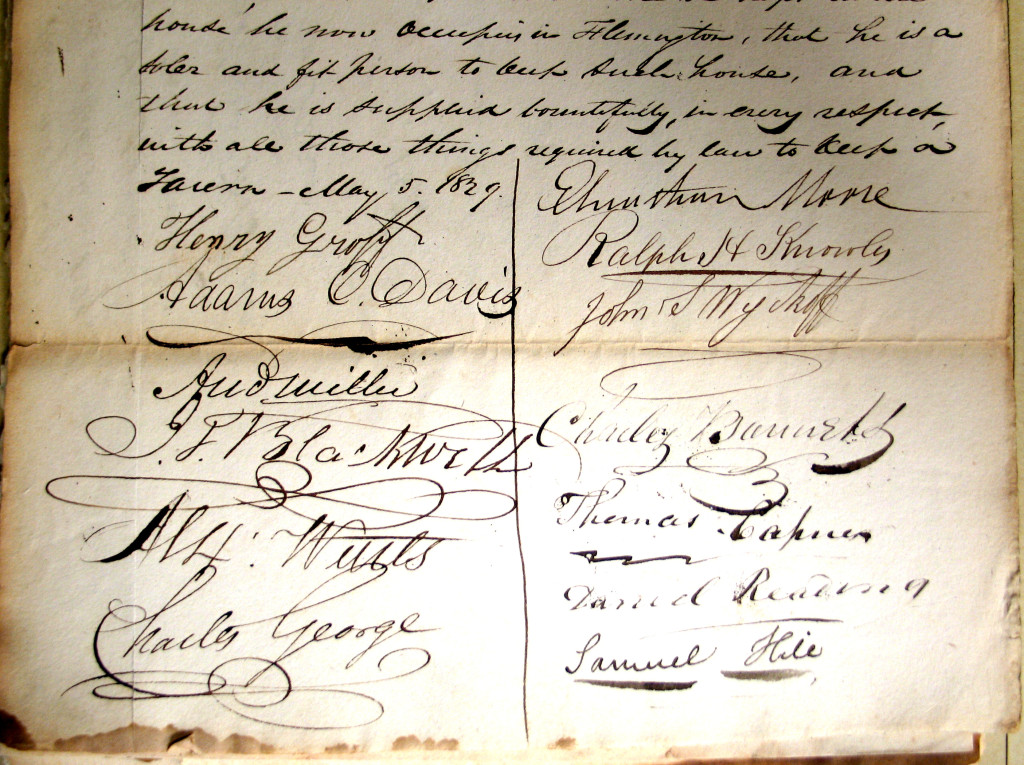 house he now occupies in Flemington, that he is a
sober and fit person to keep such house, and
that he is supplied bountifully, in every respect,
with all those things required by law to keep a
Tavern - May 5. 1829.
Henry Groff
Adams C. Davis
And Miller
J. F. Blackwell
Alex. Wurts
Charles George
Elnathan Moore
Ralph H Knowles
John S Wyckoff
Charles Bartles
Thomas Capner
Daniel Reading
Samuel Hill